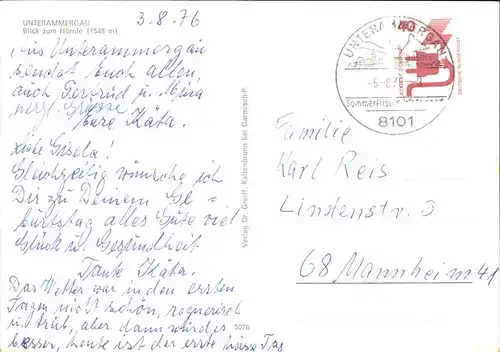 UNTERAMMERGAU
Blick zum Hörnle (1548 m)
3.8.76
Aus Unterammergau
sendet Euch allen,
auch Gertrud u. Mina
herzl. Grüsse
Eure Käta.
Liebe Gisela!
Gleichzeitig wünsche ich
Dir zu Deinem Ge-
burtstag alles Gute viel
Glück u. Gesundheit
Tante Käta.
Das Wetter war in den ersten
Tagen nicht schön, regnerisch
u. trüb, aber dann wurde es
besser, heute ist der erste heisse Tag
Verlag Dr. Greiff, Kaltenbrunn bei Garmisch-P.
5076
UNTERAMMERGAU
-5.-8.7
Sommerfrische
8101
Familie
Karl Reis
Lindenstr. 3
68 Mannheim 41